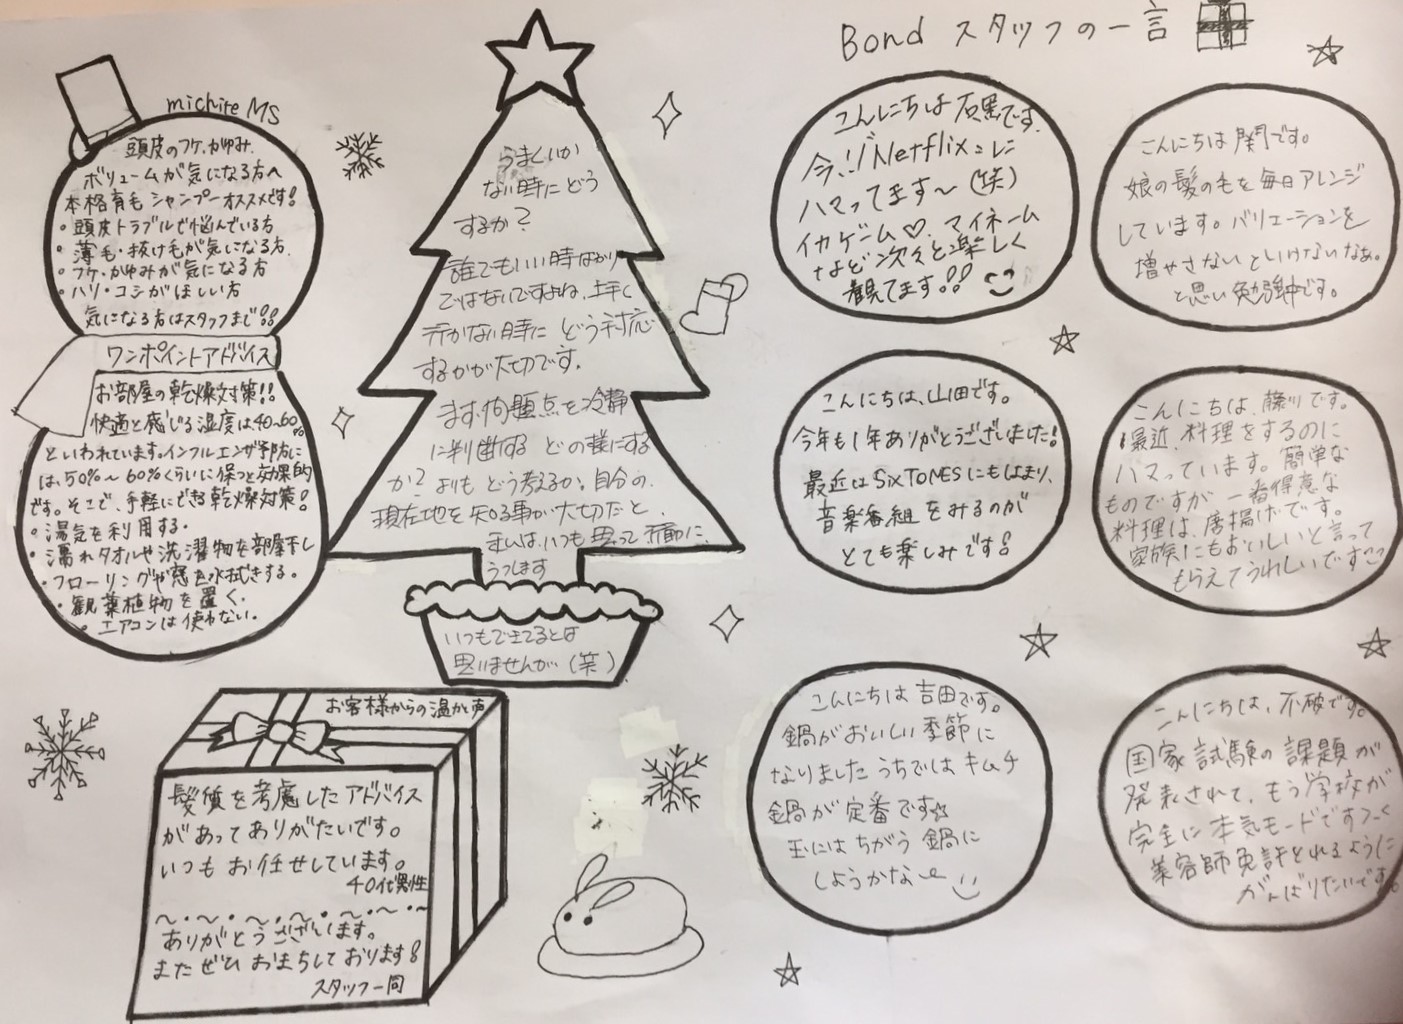 michite MS
頭皮のフケ、かゆみ、
ボリュームが気になる方へ
本格育毛シャンプーオススメです!
・頭皮トラブルで悩んでいる方
・薄毛・抜け毛が気になる方、
・フケ・かゆみが気になる方
・ハリ・コシがほしい方
気になる方はスタッフまで!!
ワンポイントアドバイス
お部屋の乾燥対策!!
快適と感じる湿度は40~60%
といわれています。インフルエンザ予防に
は、50%~60%くらいに保つと効果的
です。そこで、手軽にできる乾燥対策!
・湯気を利用する。
・濡れタオルや洗濯物を部屋干し
・フローリングや窓を水拭きする。
・観葉植物を置く。
・エアコンは使わない。
うまくいか
ない時にどう
するか?
誰でもいい時ばかり
ではないですよね、上手く
行かない時に どう対応
するかが大切です。
まず問題点を冷静
に判断する どの様にする
か? よりも どう考えるか。自分の、
現在地を知る事が大切だと、
私は、いつも思って行動に、
うつします
いつもできてるとは
思いませんが(笑)
お客様からの温かと声
髪質を考慮したアドバイス
があってありがたいです。
いつもお任せしています。
40代男性
~・~・~・~・~・~・~
ありがとうございます。
またぜひ お待ちしております!
スタッフ一同
Bond スタッフの一言
こんにちは 石黒です。
今、!!Netflixに
ハマってます~(笑)
イカゲーム♡、マイネーム
など次々と楽しく
観てます!!
こんにちは 関です。
娘の髪の毛を毎日アレンジ
しています。バリエーションを
増やさないといけないなぁ。
と思い勉強中です。
こんにちは、山田です。
今年も1年ありがとうございました!
最近はSixTONESにもはまり、
音楽番組をみるのが
とても楽しみです!
こんにちは、藤川です。
最近、料理をするのに
ハマっています。簡単な
ものですが 一番得意な
料理は、唐揚げです。
家族にもおいしいと言って
もらえてうれしいです
こんにちは 吉田です。
鍋がおいしい季節に
なりました うちでは キムチ
鍋が定番です☆
玉にはちがう 鍋に
しようかなー
こんにちは、不破です。
国家試験の課題が
発表されて、もう学校が
完全に本気モードですフーく
美容師免許とれるように
がんばりたいです。